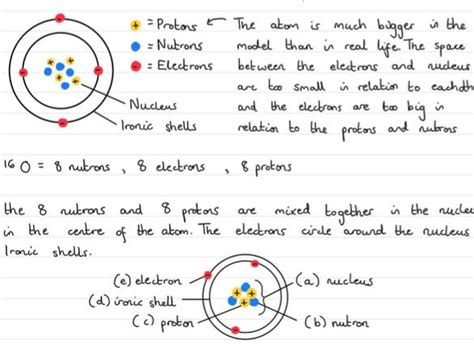 + = Protons ← The atom is much bigger in the
= Nutrons model than in real life. The space
- = Electrons between the electrons and nucleus
are too small in relation to eachoth
Nucleus and the electrons are too big in
Ironic shells relation to the protons and nutrons
16 O = 8 nutrons , 8 electrons , 8 protons
the 8 nutrons and 8 protons are mixed together in the nucleu
in the centre of the atom. The electrons circle around the nucleus
Ironic shells.
(e) electron
(a) nucleus
(d) ironic shell
(c) proton
(b) nutron